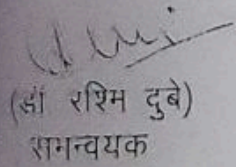 (डॉ रश्मि दुबे)
समन्वयक